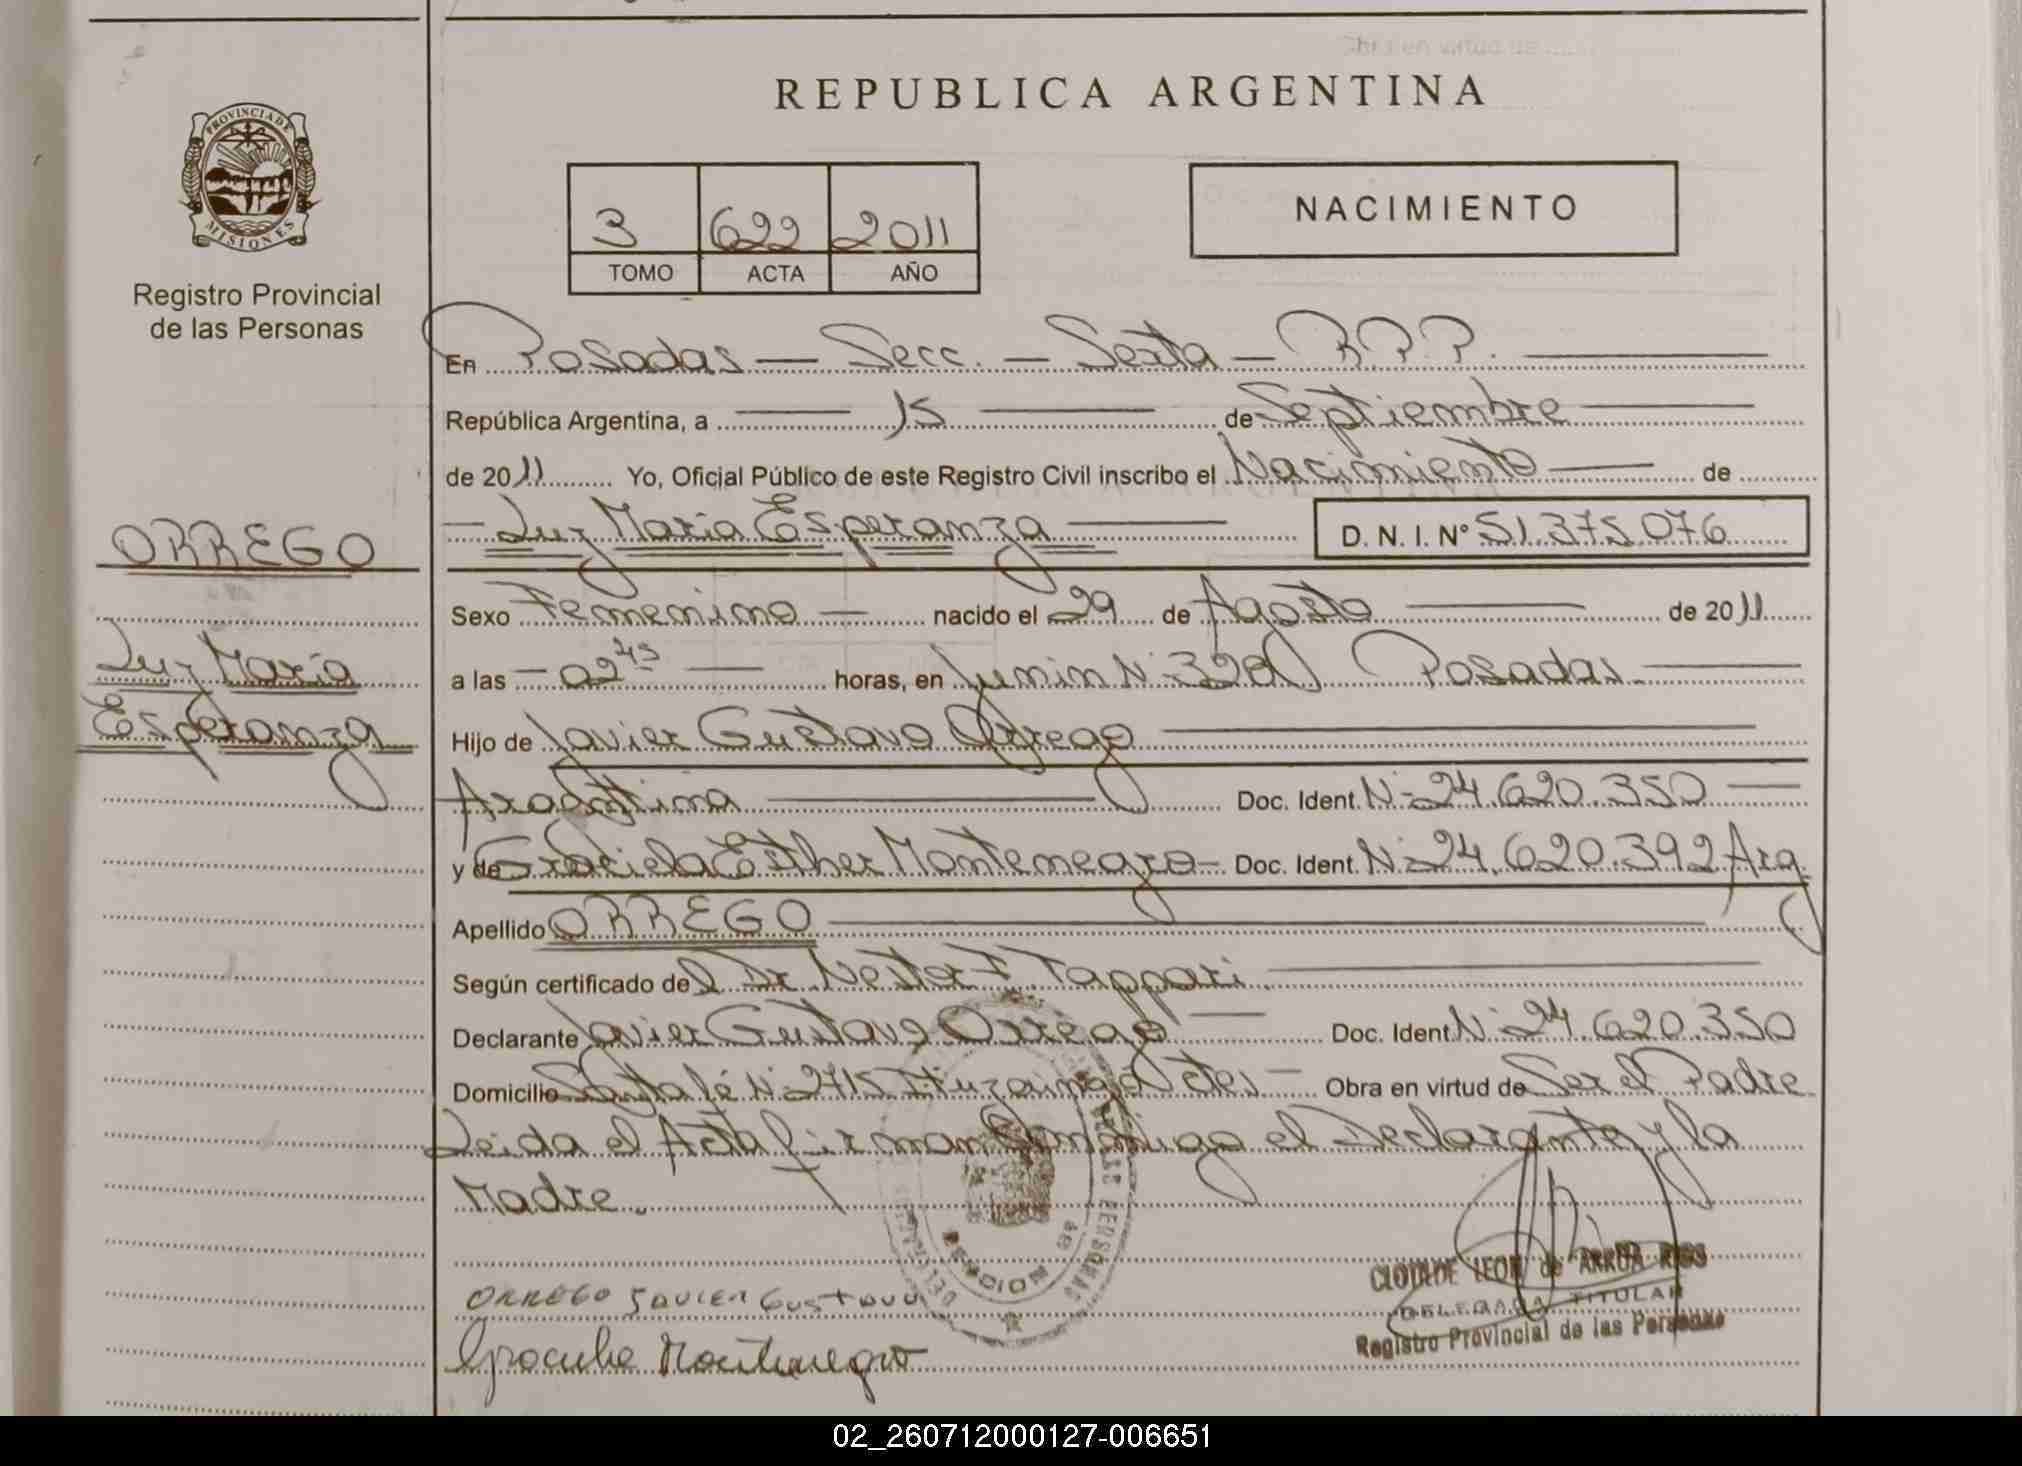 REPUBLICA ARGENTINA
PROVINCIA DE
MISIONES
Registro Provincial
de las Personas
3 622 2011
TOMO ACTA AÑO
NACIMIENTO
En Posadas — Secc. — Sexta — R.P.P.
República Argentina, a — 15 — de Septiembre
de 2011 Yo, Oficial Público de este Registro Civil inscribo el Nacimiento — de
— Luz María Esperanza — D. N. I. N° 51.375.076
ORREGO
Luz María
Esperanza
Sexo Femenino — nacido el 29 de Agosto — de 2011
a las — 02 45 — horas, en Junin N° Posadas
Hijo de Javier Gustavo Orrego
Argentina — Doc. Ident. N° 24.620.350 —
y de Graciela Esther Montenegro — Doc. Ident. N° 24.620.392 Arg.
Apellido ORREGO
Según certificado del Dr. Nestor F. Tappari
Declarante Javier Gustavo Orrego — Doc. Ident. N° 24.620.350
Domicilio Santa Fé N° 2715 Ituzaingó Ctes — Obra en virtud de Ser el Padre
Leida el Acta firman conmigo el Declarante y la
Madre.
ORREGO JAVIER GUSTAVO
Graciela Montenegro
CLOTILDE LEON de ARRUA RIOS
DELEGADA TITULAR
Registro Provincial de las Personas
02_260712000127-006651